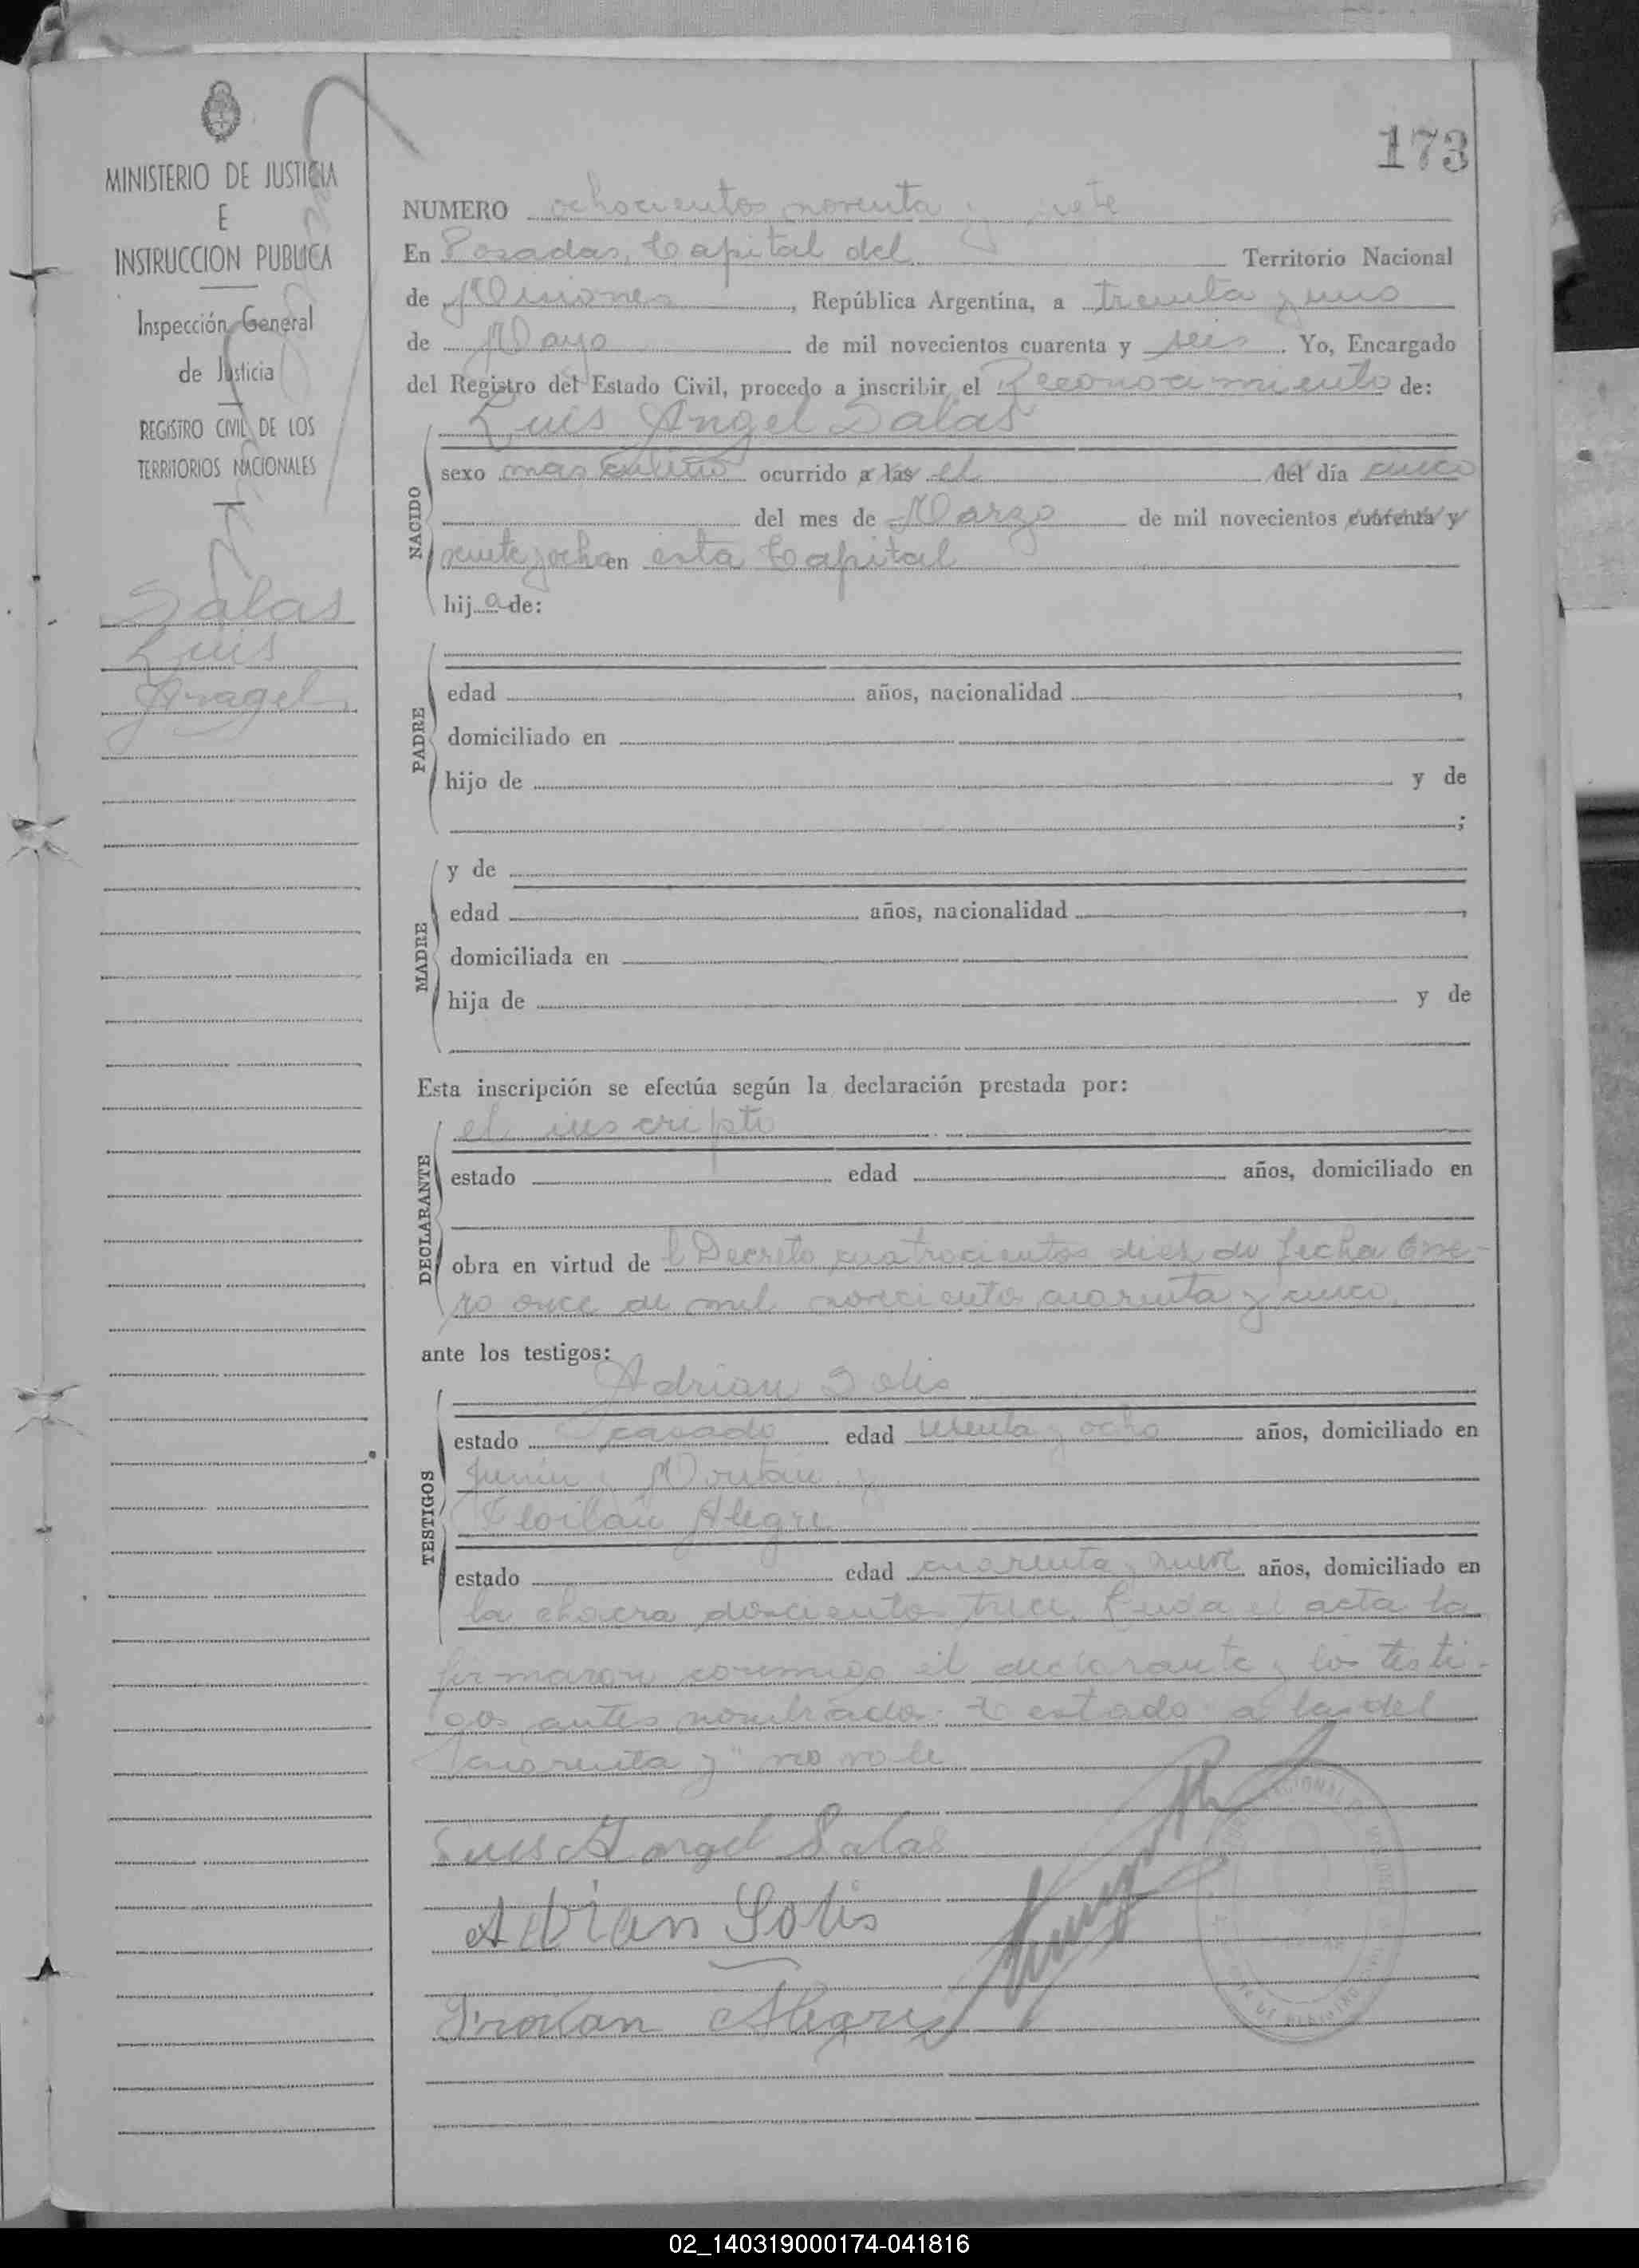 173
MINISTERIO DE JUSTICIA
E
INSTRUCCION PUBLICA
Inspección General
de Justicia
REGISTRO CIVIL DE LOS
TERRITORIOS NACIONALES
Salas
Luis
Angel
NUMERO ochocientos noventa y siete
En Posadas, Capital del Territorio Nacional
de Misiones, República Argentina, a treinta y uno
de Mayo de mil novecientos cuarenta y seis. Yo, Encargado
del Registro del Estado Civil, procedo a inscribir el Reconocimiento de:
Luis Angel Salas
NACIDO
sexo masculino ocurrido a las el del día cinco
del mes de Marzo de mil novecientos cuarenta y
veinte y ocho en esta Capital
hij a de:
PADRE
edad años, nacionalidad ,
domiciliado en
hijo de y de
;
MADRE
y de
edad años, nacionalidad ,
domiciliada en
hija de y de
Esta inscripción se efectúa según la declaración prestada por:
DECLARANTE
el inscripto
estado edad años, domiciliado en
obra en virtud de l Decreto cuatrocientos diez de fecha Ene-
ro once de mil novecientos cuarenta y cinco,
ante los testigos:
TESTIGOS
Adrian Solis
estado casado edad y ocho años, domiciliado en
Junin y
Froilan Alegre
estado edad cuarenta y nueve años, domiciliado en
la chacra doscientos trece. Leida el acta la
firmaron conmigo el declarante y los testi-
gos antes nombrados. estado a las del
"cuarenta y" no vale
Luis Angel Salas
Adrian Solis
Froilan Alegre
02_140319000174-041816